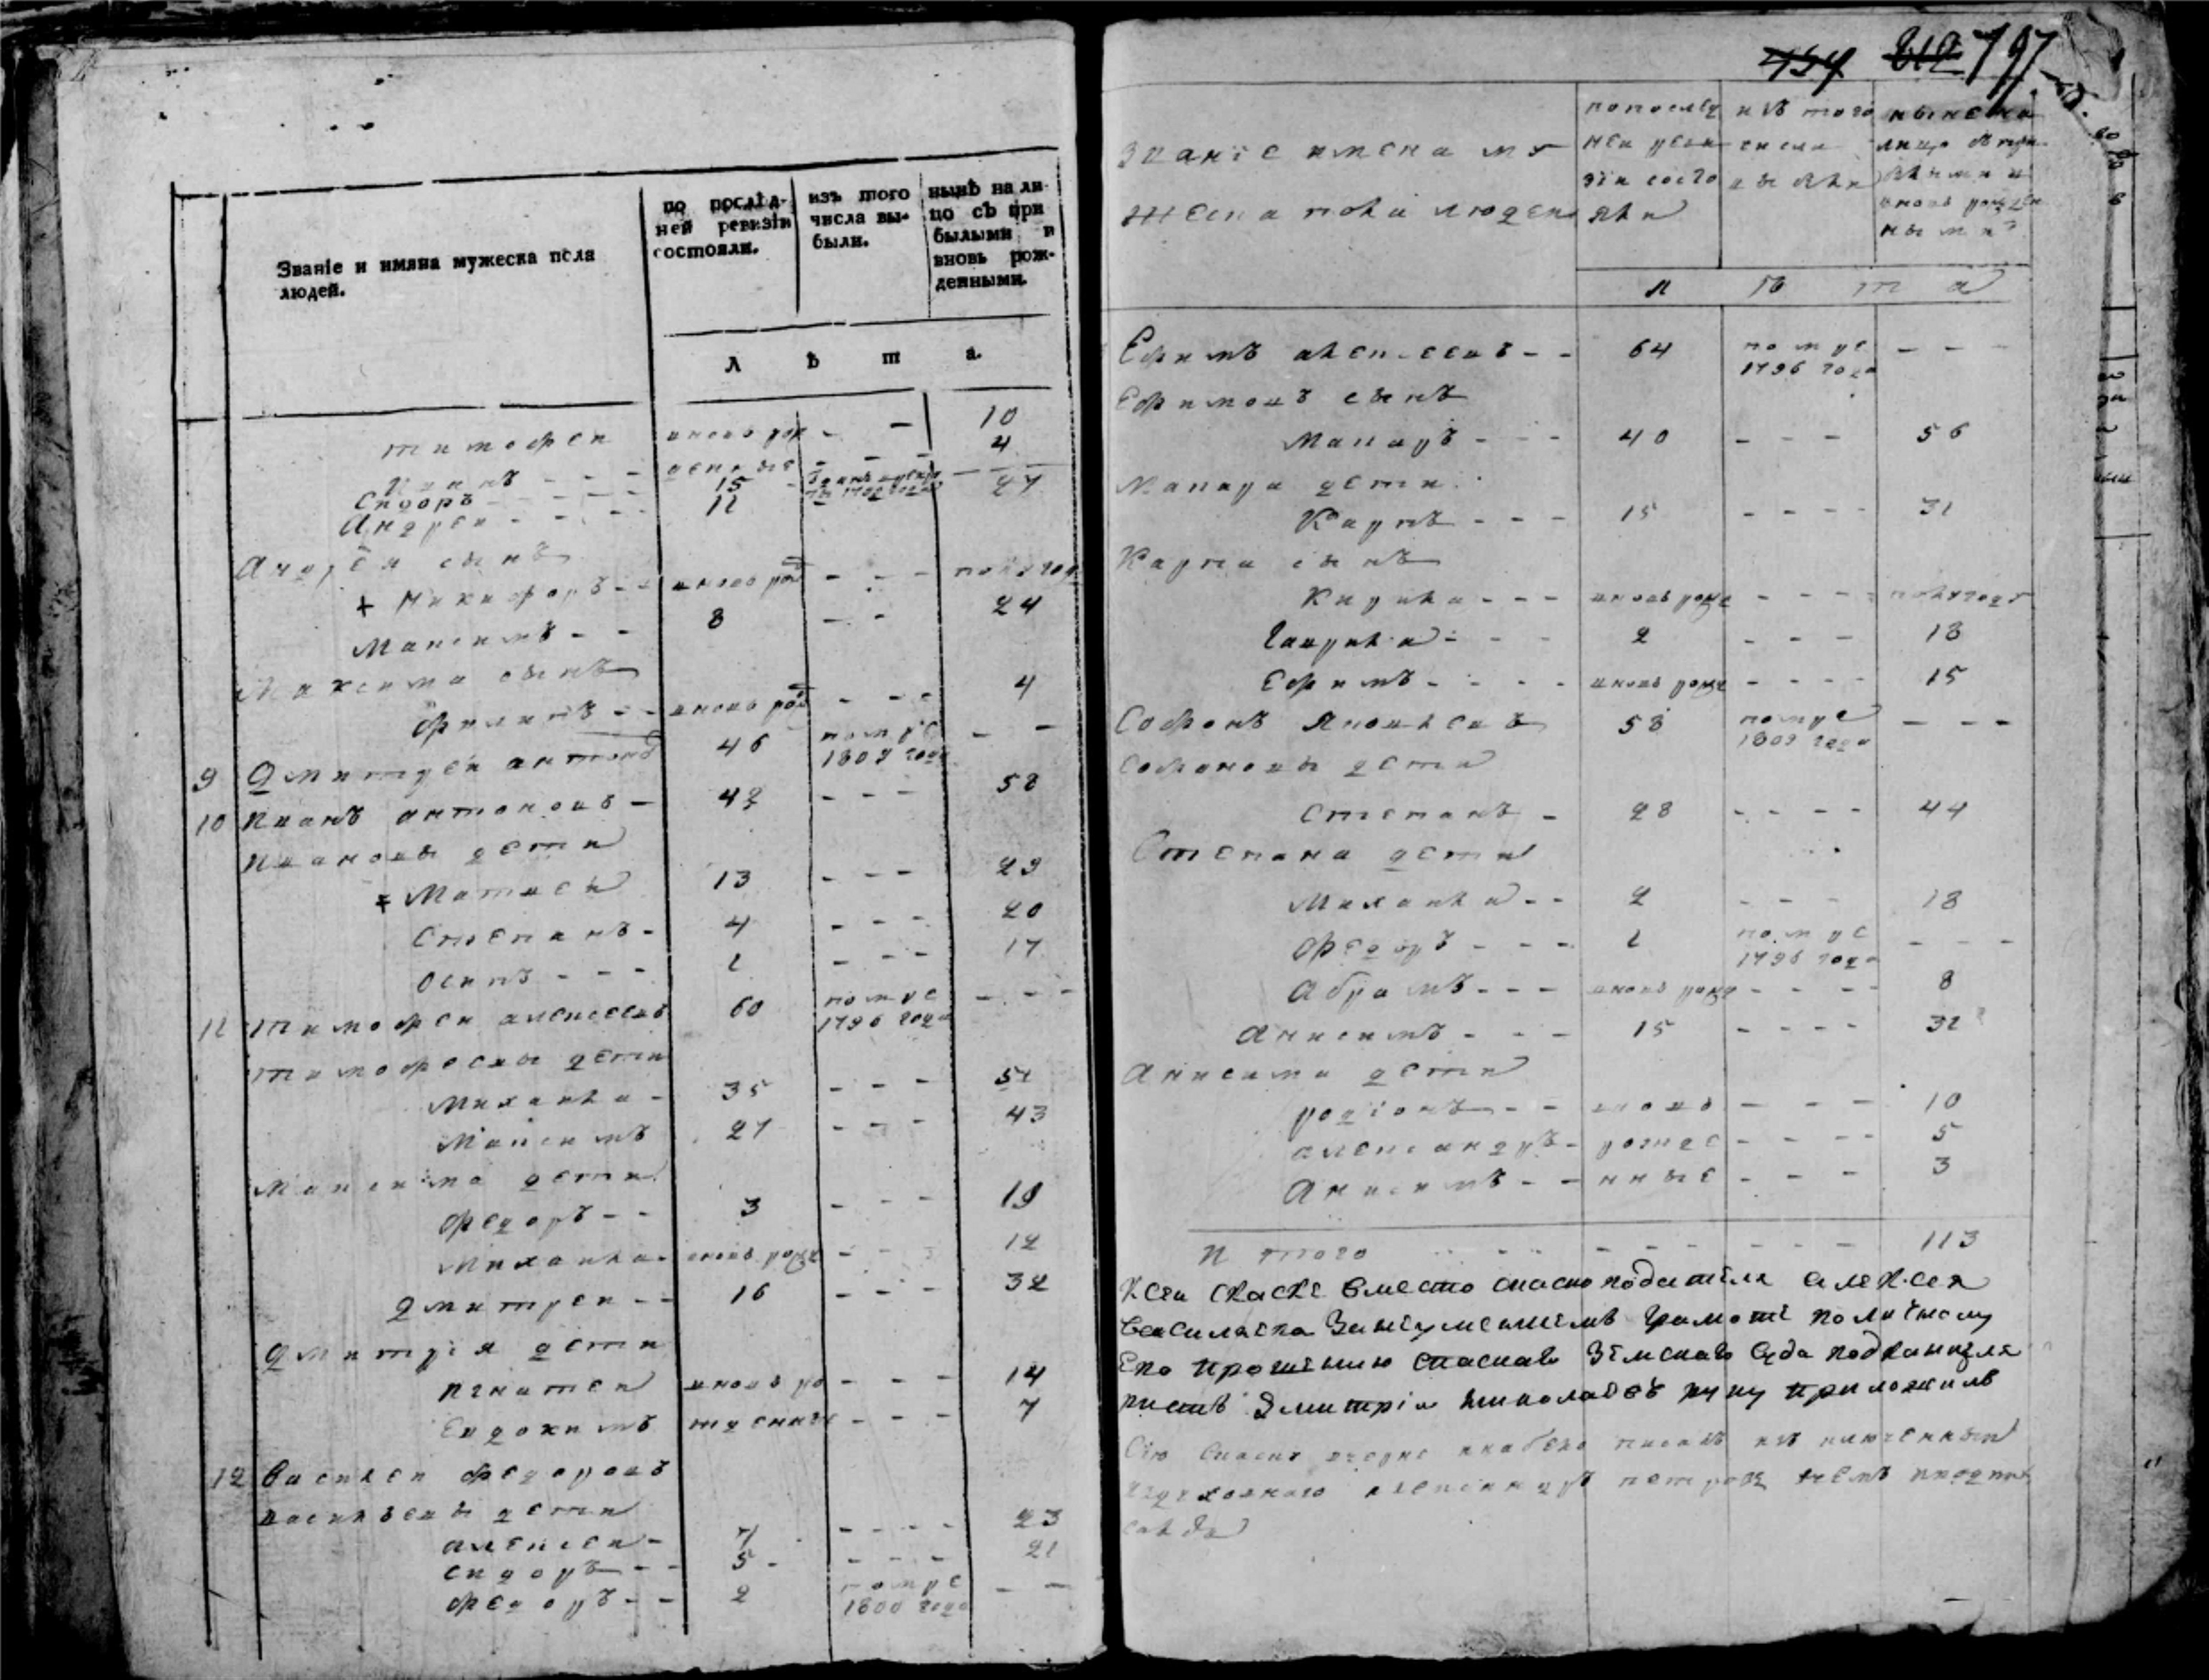 Званіе и имяна мужеска пола людей.
по послѣд-
ней ревизіи
состояли.
изъ того
числа вы-
были.
нынѣ на ли-
цо съ при
былыми и
вновь рож-
денными.
Л ѣ т а.
тимофей вновь рож - - 10
денные - - 4
Сидоръ - - - 15
Андрей - - - 27
Андрея сынъ
+ Никифоръ - - вновь рож - - - полугод
Максимъ - - 8 - - 24
Максима сынъ
Филипъ - - вновь рож - - - 4
9 Дмитрей антонов 46 помре 1809 года - -
10 иванъ антоновъ - 42 - - - 58
ивановы дети
Матвей 13 - - - 29
Степанъ - 4 - - - 20
Осипъ - - - 1 - - - 17
11 тимофей алексеевъ 60 помре 1796 года - - -
тимофеевы дети
Михайла - 35 - - - 51
Максимъ 27 - - - 43
Максима дети
Федоръ - - 3 - - - 19
Михайла - вновь рожде - - - 12
Дмитрей - - 16 - - - 32
Дмитрія дети
игнатей вновь ро - - - 14
Евдокимъ жденные - - - 7
12 Василей Федоровъ
васильевы дети
алексей - 7 - - - - 23
сидоръ - - 5 - - - - 21
Федоръ - - 2 помре 1800 года - -
797
Званіе имена му
жеска пола людей
по послед
ней реви
зіи состо
яли
изъ того
числа
выбыли
ныне на
лицо с при
былыми и
вновь рожден
ными
л ѣ т а
Ефимъ алексеевъ - - 64 помре 1796 года - - -
Ефимовъ сынъ
Макаръ - - - 40 - - - 56
Макара дети
Карпъ - - - 15 - - - - 31
Карпа сынъ
Кирила - - - вновь рожде - - - - полугоду
Гаврила - - - 2 - - - 18
Ефимъ - - - - вновь рожде - - - - 15
Софонъ Яковлевъ 58 помре 1809 года - - -
Софоновы дети
Степанъ - 28 - - - - 44
Степана дети
Михайла - - 2 - - - 18
Федоръ - - - 1 помре 1796 года - - -
Абрамъ - - - вновь рожде - - - - 8
Анисимъ - - - 15 - - - - 31
Анисима дети
родіонъ - - вновь - - - 10
александръ - рожде - - - - 5
Анисимъ - - нные - - - 3
Итого - - - - - - - 113
К сей скаске вместо скаскоподателя алексея
Васильева Грамоте по личному
Ево прошению спаскаго Земскаго суда подканцеля
ристъ Дмитрій николаевъ руку приложилъ
Сію Скаску писалъ